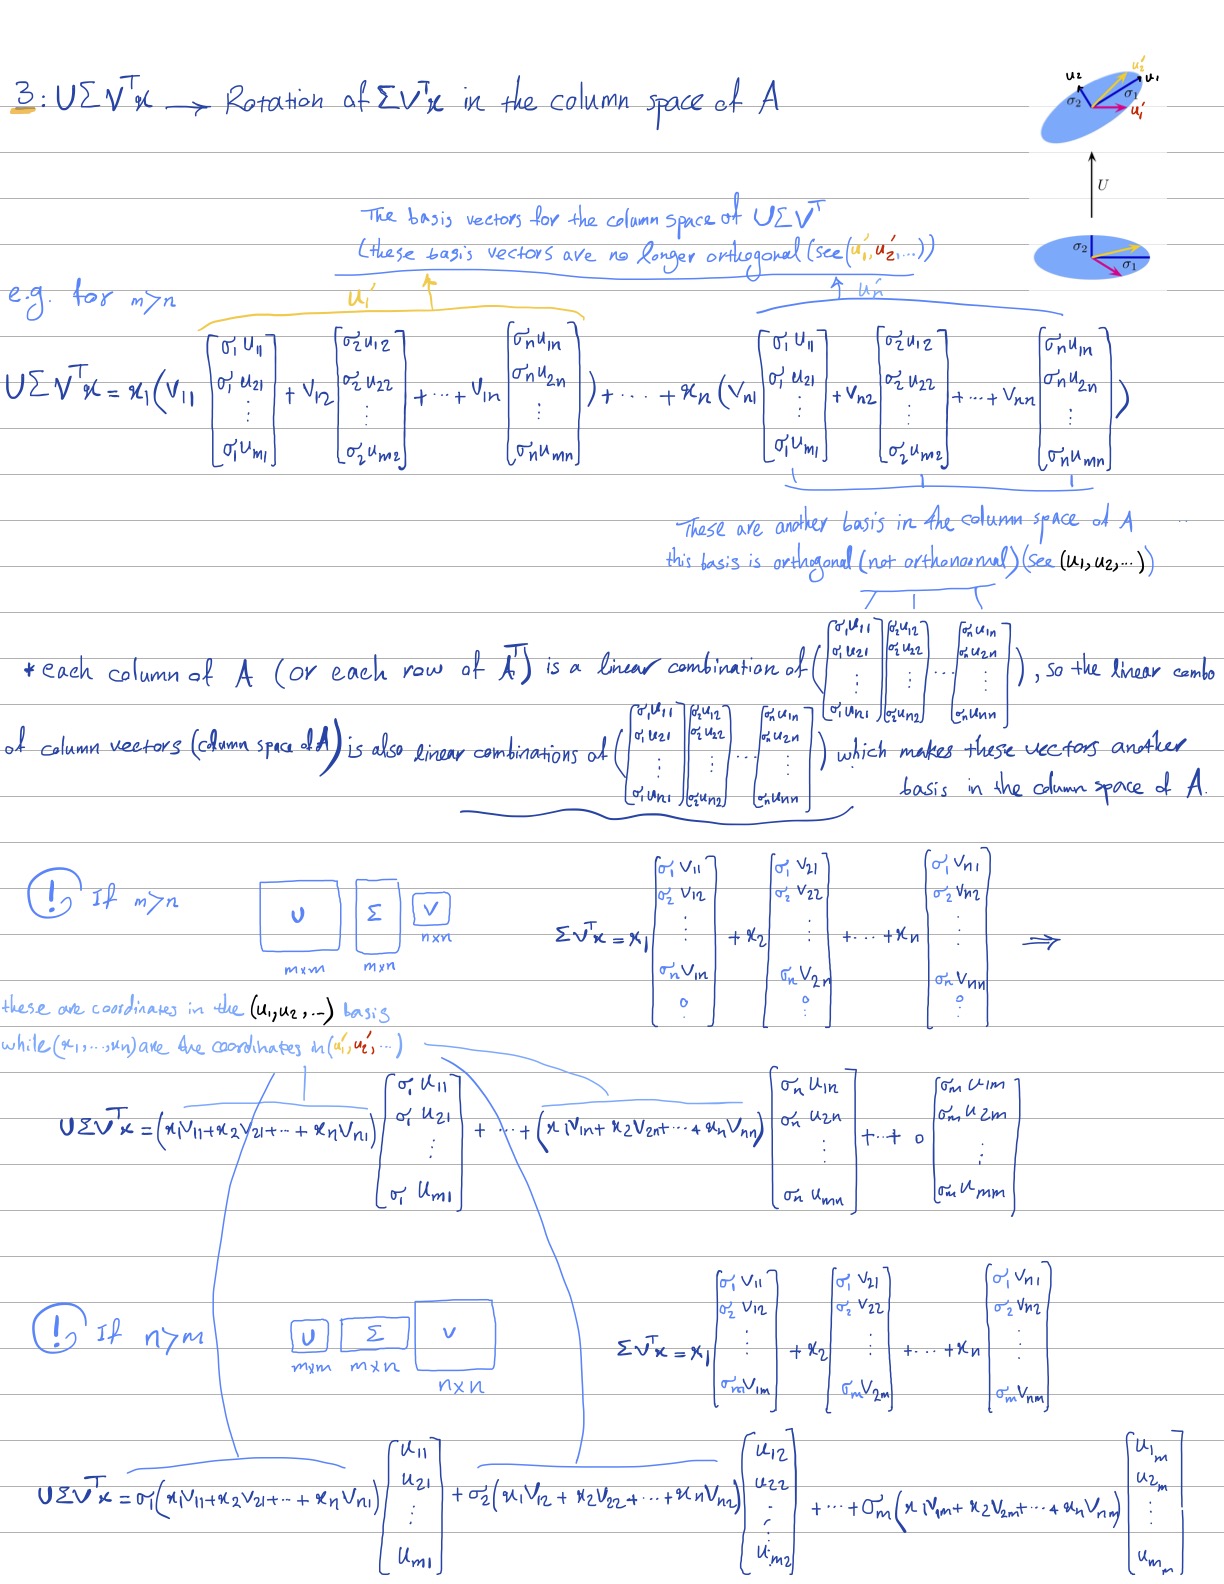 3: UΣVᵀx → Rotation of ΣVᵀx in the column space of A
u₂ u₂' u₁
σ₂ σ₁ u₁'
U
σ₂ σ₁
The basis vectors for the column space of UΣVᵀ
(these basis vectors are no longer orthogonal (see (u₁', u₂', ...))
e.g. for m>n
u₁' uₙ'
UΣVᵀx = x₁(V₁₁ [σ₁u₁₁ σ₁u₂₁ ⋮ σ₁uₘ₁] + V₁₂ [σ₂u₁₂ σ₂u₂₂ ⋮ σ₂uₘ₂] + ... + V₁ₙ [σₙu₁ₙ σₙu₂ₙ ⋮ σₙuₘₙ]) + ... + xₙ (Vₙ₁ [σ₁u₁₁ σ₁u₂₁ ⋮ σ₁uₘ₁] + Vₙ₂ [σ₂u₁₂ σ₂u₂₂ ⋮ σ₂uₘ₂] + ... + Vₙₙ [σₙu₁ₙ σₙu₂ₙ ⋮ σₙuₘₙ])
These are another basis in the column space of A
this basis is orthogonal (not orthonormal) (see (u₁, u₂, ...))
* each column of A (or each row of Aᵀ) is a linear combination of ([σ₁u₁₁ σ₁u₂₁ ⋮ σ₁uₙ₁] [σ₂u₁₂ σ₂u₂₂ ⋮ σ₂uₙ₂] ... [σₙu₁ₙ σₙu₂ₙ ⋮ σₙuₙₙ]), so the linear combo
of column vectors (column space of A) is also linear combinations of ([σ₁u₁₁ σ₁u₂₁ ⋮ σ₁uₙ₁] [σ₂u₁₂ σ₂u₂₂ ⋮ σ₂uₙ₂] ... [σₙu₁ₙ σₙu₂ₙ ⋮ σₙuₙₙ]) which makes these vectors another
basis in the column space of A.
! If m>n
U Σ V
m×m m×n n×n
ΣVᵀx = x₁ [σ₁V₁₁ σ₂V₁₂ ⋮ σₙV₁ₙ 0 ⋮] + x₂ [σ₁V₂₁ σ₂V₂₂ ⋮ σₙV₂ₙ 0 ⋮] + ... + xₙ [σ₁Vₙ₁ σ₂Vₙ₂ ⋮ σₙVₙₙ 0 ⋮] ⇒
these are coordinates in the (u₁, u₂, ...) basis
while (x₁, ..., xₙ) are the coordinates in (u₁', u₂', ...)
UΣVᵀx = (x₁V₁₁+x₂V₂₁+...+xₙVₙ₁) [σ₁u₁₁ σ₁u₂₁ ⋮ σ₁uₘ₁] + ... + (x₁V₁ₙ+x₂V₂ₙ+...+xₙVₙₙ) [σₙu₁ₙ σₙu₂ₙ ⋮ σₙuₘₙ] + ... + 0 [σₘu₁ₘ σₘu₂ₘ ⋮ σₘuₘₘ]
! If n>m
U Σ V
m×m m×n n×n
ΣVᵀx = x₁ [σ₁V₁₁ σ₂V₁₂ ⋮ σₘV₁ₘ] + x₂ [σ₁V₂₁ σ₂V₂₂ ⋮ σₘV₂ₘ] + ... + xₙ [σ₁Vₙ₁ σ₂Vₙ₂ ⋮ σₘVₙₘ]
UΣVᵀx = σ₁(x₁V₁₁+x₂V₂₁+...+xₙVₙ₁) [u₁₁ u₂₁ ⋮ uₘ₁] + σ₂(x₁V₁₂+x₂V₂₂+...+xₙVₙ₂) [u₁₂ u₂₂ ⋮ uₘ₂] + ... + σₘ(x₁V₁ₘ+x₂V₂ₘ+...+xₙVₙₘ) [u₁ₘ u₂ₘ ⋮ uₘₘ]